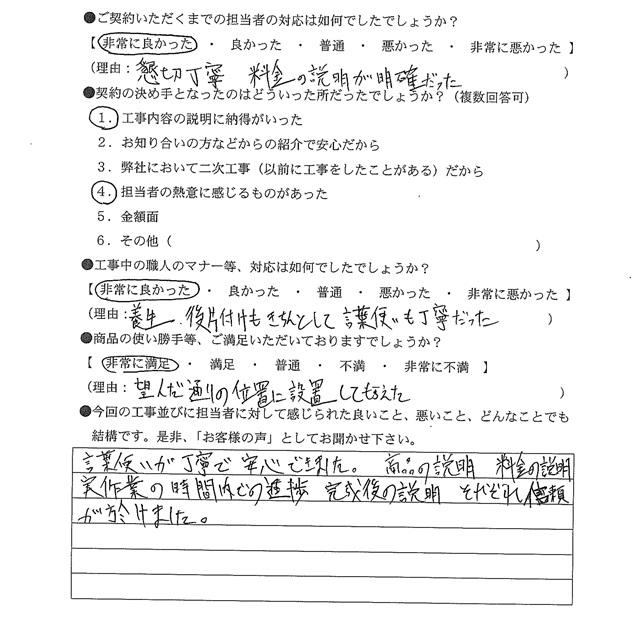 ●ご契約いただくまでの担当者の対応は如何でしたでしょうか？
【 非常に良かった ・ 良かった ・ 普通 ・ 悪かった ・ 非常に悪かった 】
（理由：懇切丁寧 料金の説明が明確だった ）
●契約の決め手となったのはどういった所だったでしょうか？（複数回答可）
１．工事内容の説明に納得がいった
２．お知り合いの方などからの紹介で安心だから
３．弊社において二次工事（以前に工事をしたことがある）だから
４．担当者の熱意に感じるものがあった
５．金額面
６．その他（ ）
●工事中の職人のマナー等、対応は如何でしたでしょうか？
【 非常に良かった ・ 良かった ・ 普通 ・ 悪かった ・ 非常に悪かった 】
（理由：養生、後片付けもきちんとして 言葉使いも丁寧だった ）
●商品の使い勝手等、ご満足いただいておりますでしょうか？
【 非常に満足 ・ 満足 ・ 普通 ・ 不満 ・ 非常に不満 】
（理由：望んだ通りの位置に設置してもらえた ）
●今回の工事並びに担当者に対して感じられた良いこと、悪いこと、どんなことでも
結構です。是非、「お客様の声」としてお聞かせ下さい。
言葉使いが丁寧で安心できました。 商品の説明 料金の説明
実作業の時間内での進捗 完成後の説明 それぞれ信頼
がおけました。